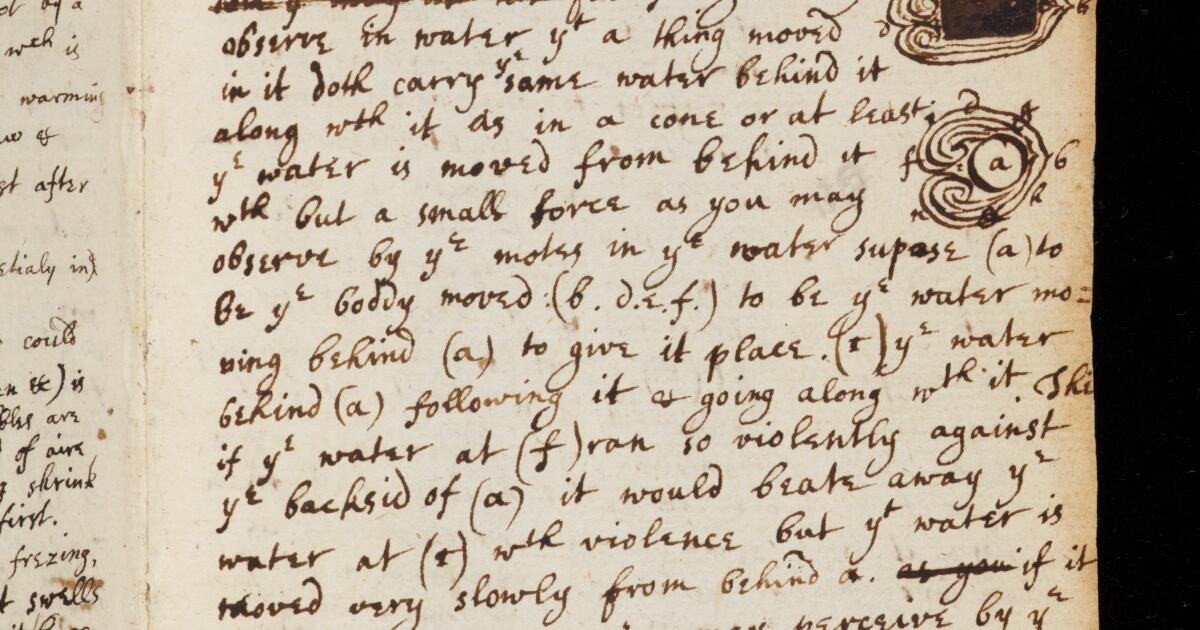 ot by a
wch is
warming
st after
estialy in
could
en &c) is
bles are
of aire
shrink
first.
frezing,
t swells
observe in water yt a thing moved d
in it doth carry ye same water behind it
along wth it as in a cone or at least
ye water is moved from behind it f a b
wth but a small force as you may
observe by ye motes in ye water supose (a) to
be ye boddy moved (b. d.e.f.) to be ye water mo=
ving behind (a) to give it place. (c) ye water
behind (a) following it & going along wth it. The
if ye water at (f) ran so violently against
ye backsid of (a) it would beate away ye
water at (c) wth violence but yt water is
moved very slowly from behind a. as you if it
perceive by ye